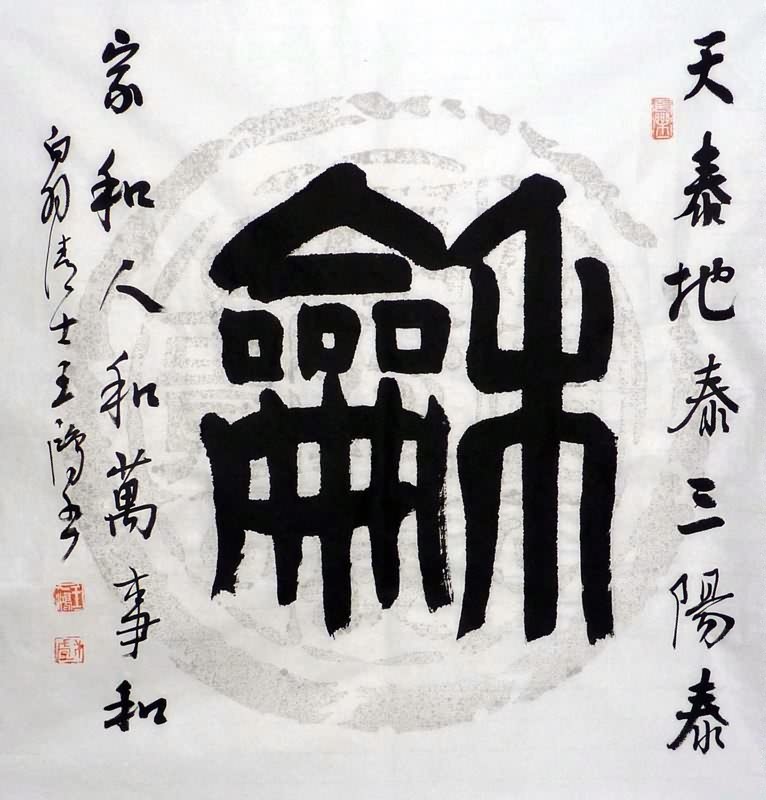 天泰地泰三陽泰
龢
家和人和萬事和
白羽清士王書